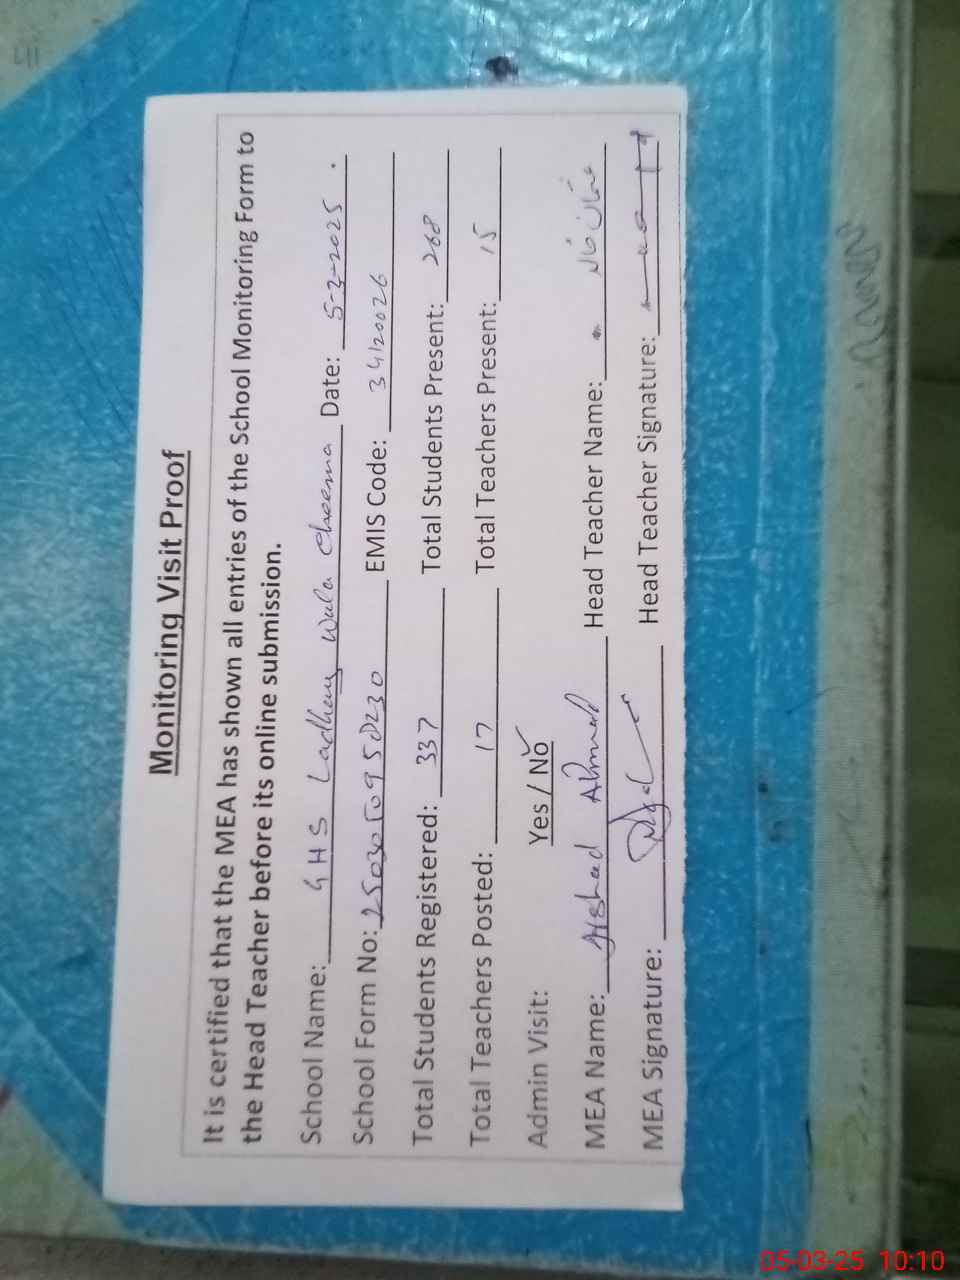 Monitoring Visit Proof
It is certified that the MEA has shown all entries of the School Monitoring Form to
the Head Teacher before its online submission.
School Name: GHS Ladhay Wala Cheema Date: 5-3-2025.
School Form No: EMIS Code: 34120026
Total Students Registered: 337 Total Students Present: 268
Total Teachers Posted: 17 Total Teachers Present: 15
Admin Visit: Yes / No ✓
MEA Name: Arshad Ahmad Head Teacher Name:
MEA Signature: Head Teacher Signature:
05-03-25 10:10